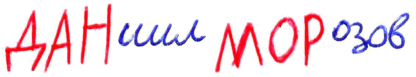 ДАНиил МОРозов